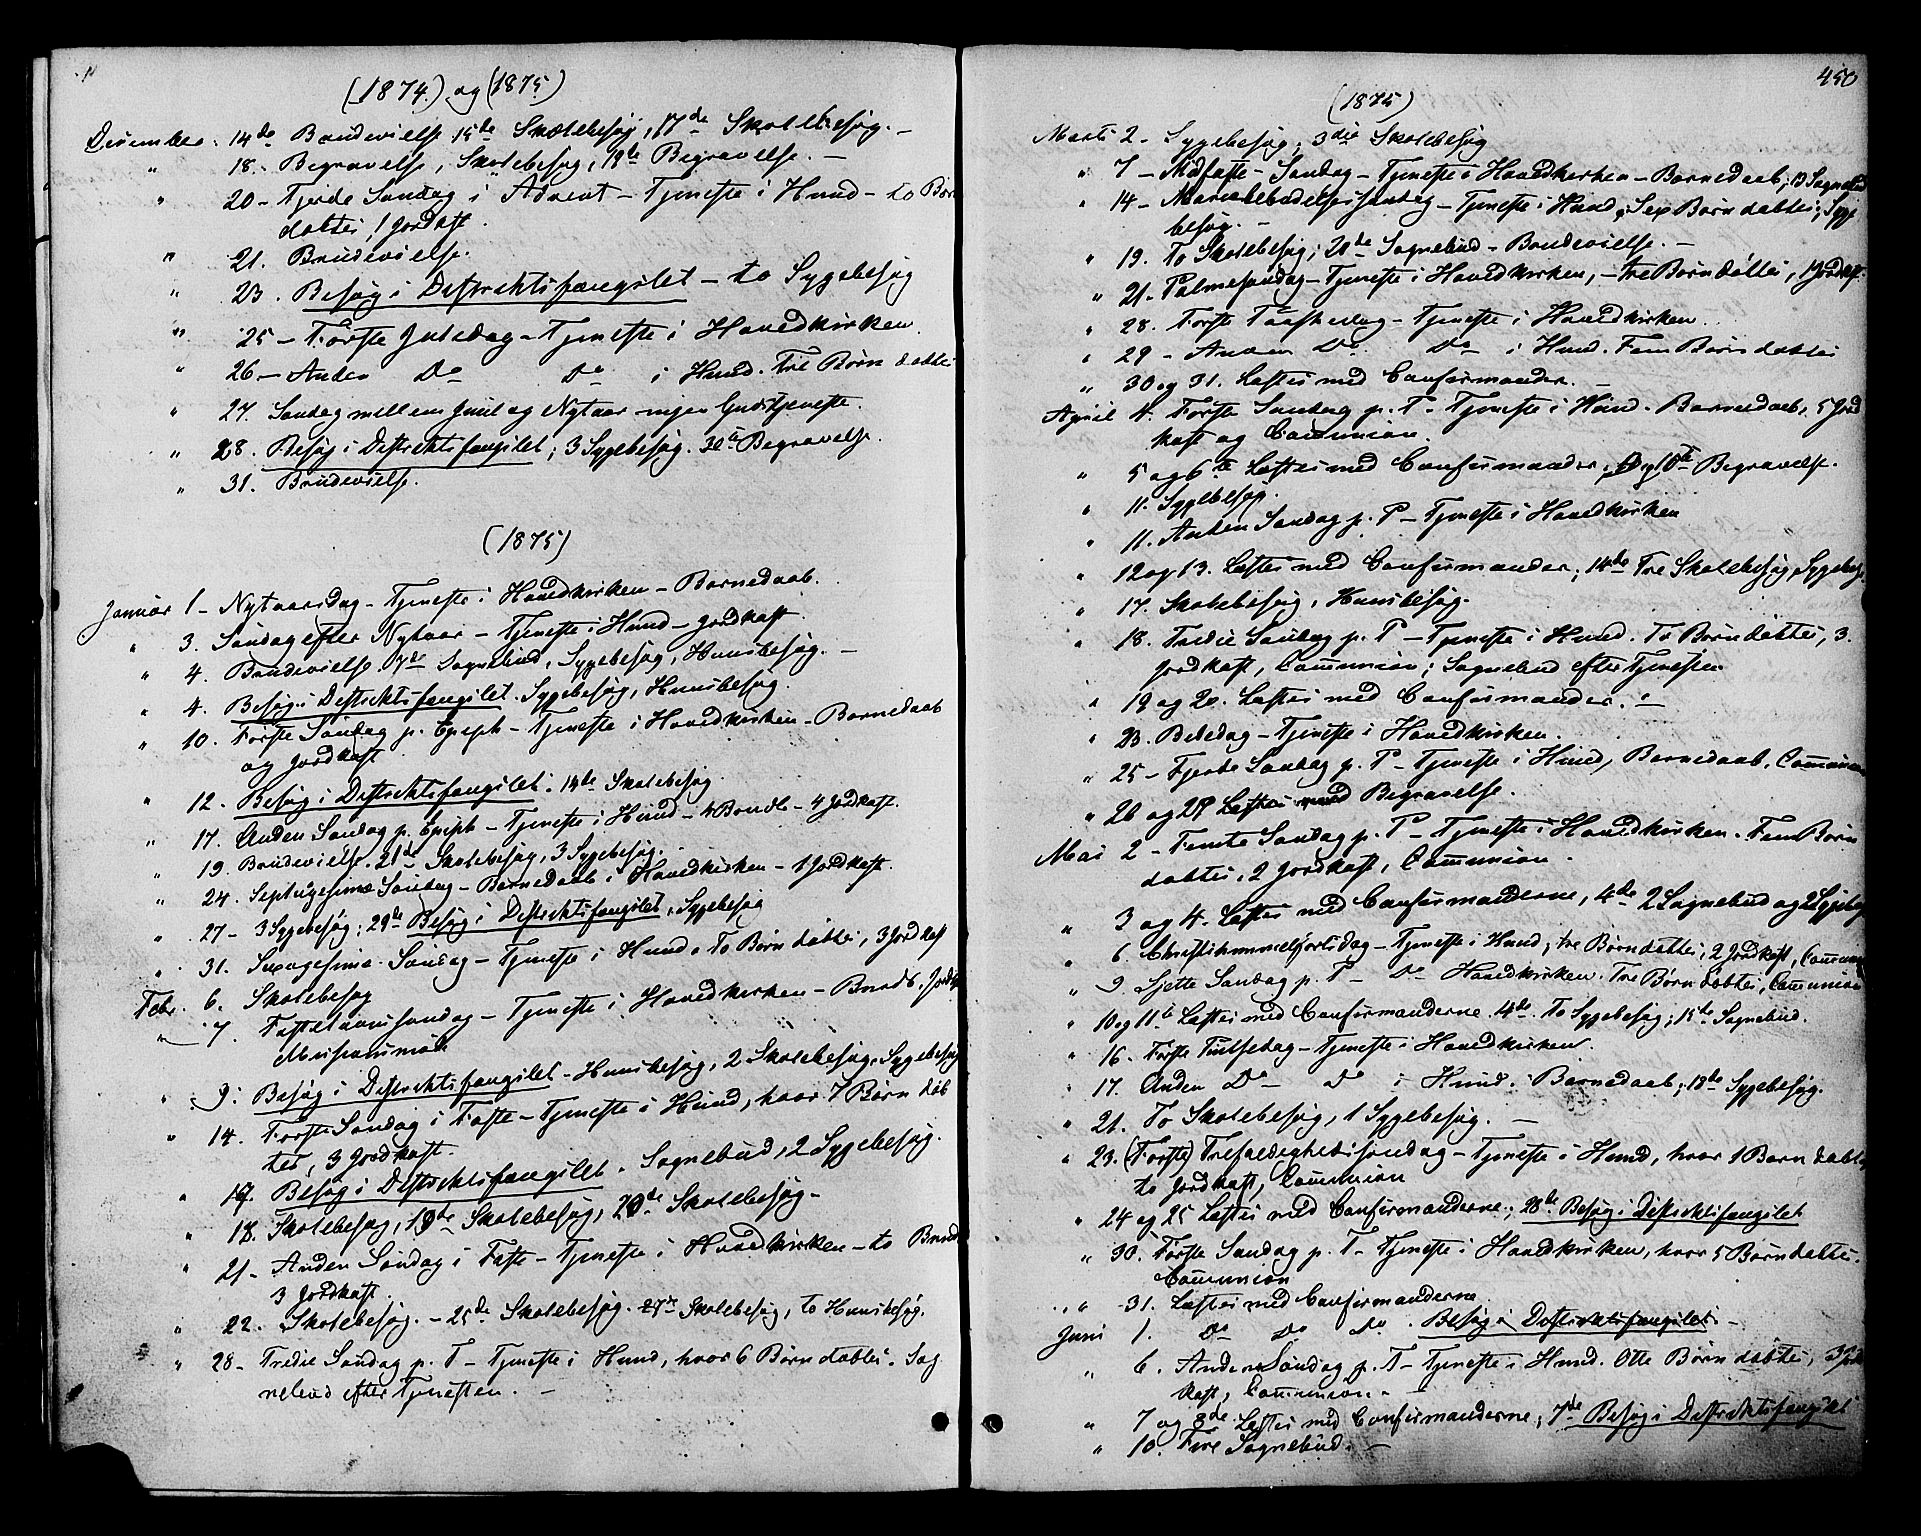 (1874.) og (1875)
December. 14de Brudevielse 15de Skolebesøg, 17de Skolebesøg. –
" 18. Begravelse, Skolebesøg, 19de Begravelse. –
" 20 – Fjerde Søndag i Advent – Tjeneste i Hund – to Børn
døbtes, 1 Jordkast.
" 21. Brudevielse.
" 23. Besøg i Distriktsfængslet – to Sygebesøg
" 25 – Første Juledag – Tjeneste i Hovedkirken.
" 26 – Anden Do Do i Hund. Tre Børn døbtes
" 27. Søndag mellem Juul og Nytaar – ingen Gudstjeneste.
" 28. Besøg i Distriktsfængslet; 3 Sygebesøg. 30te Begravelse.
" 31. Brudevielse.
(1875)
Januar 1 – Nytaarsdag – Tjeneste i Hovedkirken – Barnedaab.
" 3. Søndag efter Nytaar – Tjeneste i Hund – Jordkast.
" 4. Brudevielse 7de Sognebud, Sygebesøg, Huusbesøg. –
" 4. Besøg i Distriktsfængslet. Sygebesøg, Huusbesøg.
" 10. Første Søndag p. Epiph – Tjeneste i Hovedkirken – Barnedaab
og Jordkast
" 12. Besøg i Distriktsfængslet. 14de Skolebesøg.
" 17. Anden Søndag p. Epiph – Tjeneste i Hund – 4 Barnd. – 4 Jordkast.
" 19. Brudevielse. 21de Skolebesøg, 3 Sygebesøg.
" 24. Septuagesima Søndag – Barnedaab i Hovedkirken – 1 Jordkast.
" 27 – 3 Sygebesøg; 29de Besøg i Distriktsfængslet, Sygebesøg
" 31. Sexagesima Søndag – Tjeneste i Hund. To Børn døbtes, 3 Jordkast
Febr. 6. Skolebesøg
" 7. Fastelavnssøndag – Tjeneste i Hovedkirken – Barnd., Jordk
Missionsmøde
" 9. Besøg i Distriktsfængslet – Huusbesøg, 2 Skolebesøg, Sygebesøg
" 14. Første Søndag i Faste – Tjeneste i Hund, hvor 7 Børn døb
tes, 3 Jordkast.
" 17. Besøg i Distriktsfængslet. Sognebud, 2 Sygebesøg.
" 18. Skolebesøg, 19de Skolebesøg, 20de Skolebesøg –
" 21 – Anden Søndag i Faste – Tjeneste i Hovedkirken – to Barnd
3 Jordkast.
" 22. Skolebesøg. – 25de Skolebesøg. 27de Skolebesøg, to Huusbesøg.
" 28 – Tredie Søndag p. T – Tjeneste i Hund, hvor 6 Børn døbtes. Sog
nebud efter Tjenesten. –
450
(1875)
Marts 2 – Sygebesøg; 3die Skolebesøg
" 7 – Midfaste – Søndag – Tjeneste i Hovedkirken – Barnedaab; 13 Sognebud
" 14 – Mariæbebudelsessøndag – Tjeneste i Hund, Sex Børn døbtes; Syge
besøg. –
" 19. To Skolebesøg; 20de Sognebud – Brudevielse. –
" 21 – Palmesøndag – Tjeneste i Hovedkirken, – tre Børn døbtes, 1 Jordkast.
" 28. Første Paaskedag – Tjeneste i Hovedkirken.
" 29 – Anden Do. Do i Hund. Fem Børn døbtes
" 30 og 31. Læstes med Confirmander. –
April 4. Første Søndag p. P – Tjeneste i Hund. Barnedaab, 5 Jord
kast og Communion.
" 5 og 6te Læstes med Confirmander, 10de Begravelse.
" 11. Sygebesøg.
" 11. Anden Søndag p. P – Tjeneste i Hovedkirken
" 12 og 13. Læstes med Confirmander; 14de Tre Skolebesøg, Sygebesøg.
" 17. Skolebesøg, Huusbesøg.
" 18. Tredie Søndag p. P – Tjeneste i Hund. To Børn døbtes, 3.
Jordkast, Communion; Sognebud efter Tjenesten
" 19 og 20. Læstes med Confirmander. –
" 23. Bededag – Tjeneste i Hovedkirken.
" 25 – Fjerde Søndag p. P – Tjeneste i Hund, Barnedaab. Communion
" 26 og 27 Læstes med Begravelse.
Mai 2 – Femte Søndag p. P – Tjeneste i Hovedkirken. Fem Børn
døbtes, 2 Jordkast, Communion.
" 3 og 4. Læstes med Confirmanderne, 4de 2 Sognebud og 2 Sygebes
" 6. Christi himmelfartsdag – Tjeneste i Hund; tre Børn døbtes; 2 Jordkast, Commun
" 9. Sjette Søndag p. P – Do Hovedkirken. Tre Børn døbtes, Communion
" 10 og 11te Læstes med Confirmanderne. 14de. To Sygebesøg; 15de Sognebud.
" 16. Første Pintsedag – Tjeneste i Hovedkirken.
" 17. Anden Do – Do i Hund. Barnedaab; 18de Sygebesøg.
" 21. To Skolebesøg, 1 Sygebesøg. –
" 23. (Første) Trefoldighedssøndag – Tjeneste i Hund, hvor 1 Barn døbtes
to Jordkast, Communion
" 24 og 25 Læstes med Confirmanderne; 28de Besøg i Distriktsfængslet
" 30. Første Søndag p. T – Tjeneste i Hovedkirken, hvor 5 Børn døbtes.
Communion
" 31. Læstes med Confirmanderne.
Juni 1. Do Do Do. Besøg i Distriktsfængslet –
" 6. Anden Søndag p. T – Tjeneste i Hund. Otte Børn døbtes, 3 Jord
kast, Communion. –
" 7 og 8de. Læstes med Confirmanderne, 7de Besøg i Distriktsfængslet
" 10. Fire Sognebud. –